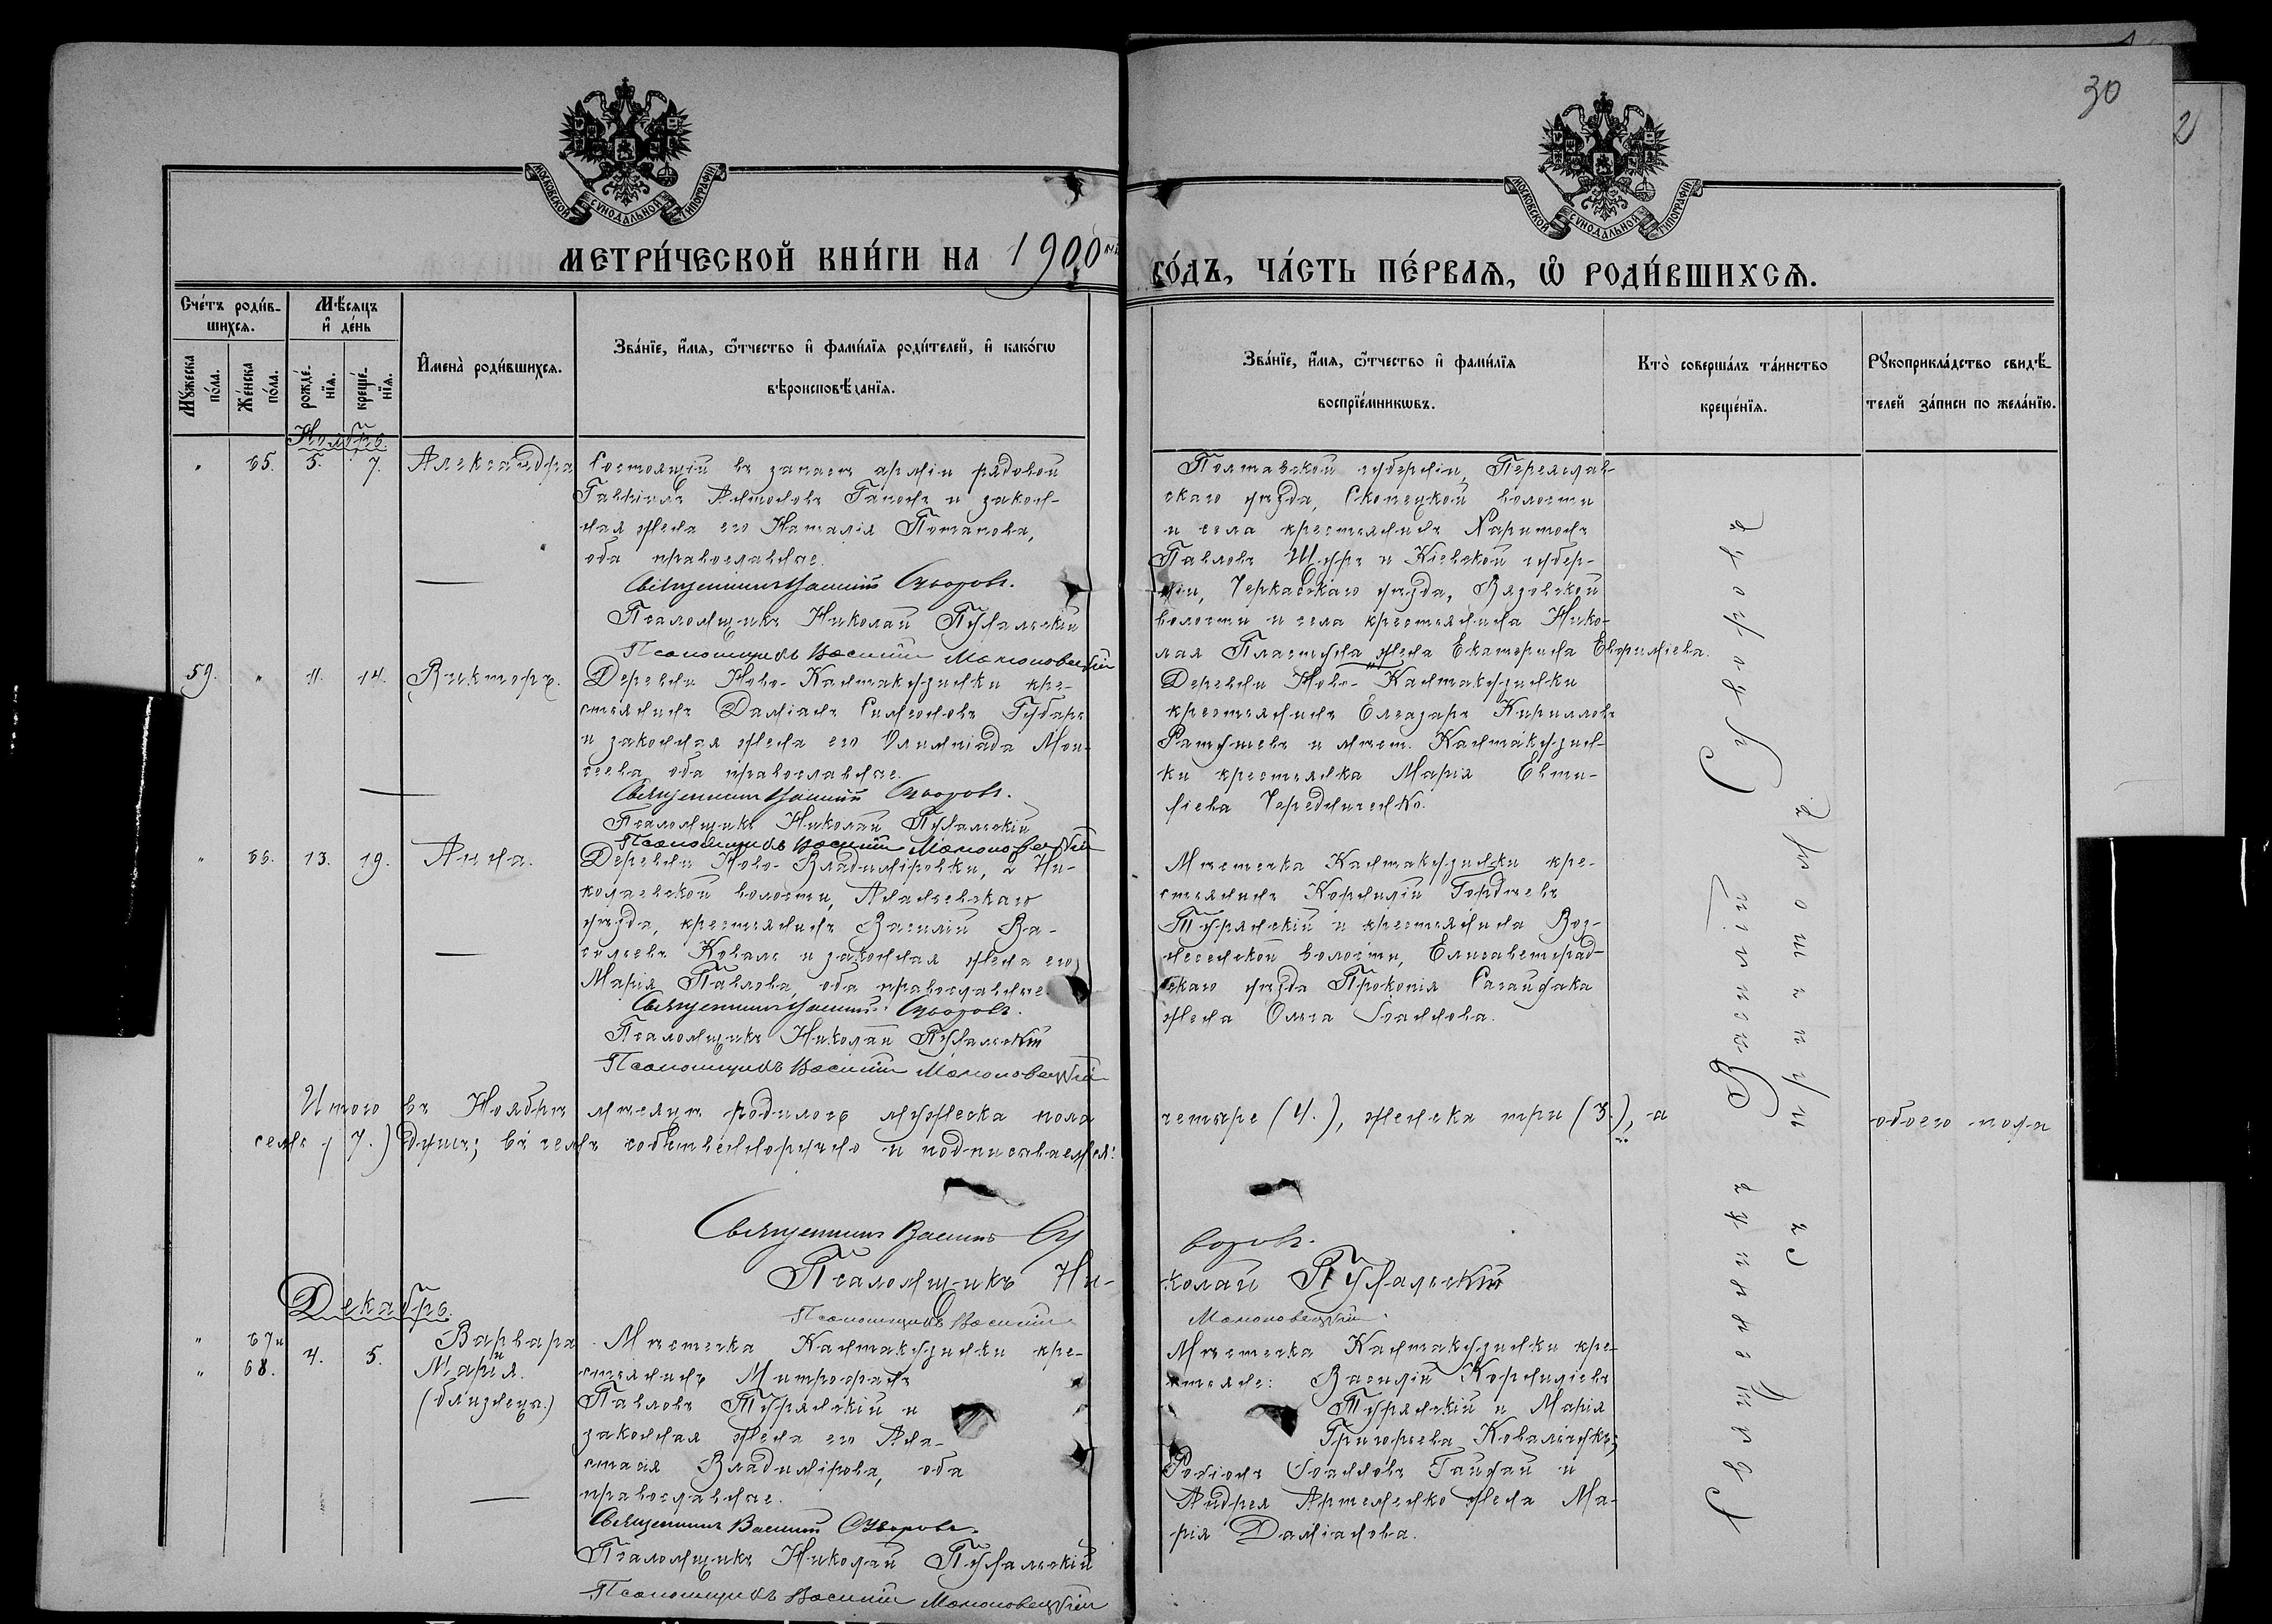 30
2
МОСКОВСКОЙ СѴНОДАЛЬНОЙ ТИПОГРАФІИ
МОСКОВСКОЙ СѴНОДАЛЬНОЙ ТИПОГРАФІИ
МЕТРИ́ЧЕСКОЙ КНИ́ГИ НА 1900
ГО́ДЪ, ЧА́СТЬ ПЕ́РВАѦ, Ѡ҆ РОДИ́ВШИХСѦ.
Сче́тъ роди́в-
шихсѧ.
Мꙋ́жеска по́ла.
Же́нска по́ла.
Мѣ́сѧцъ
и҆ де́нь
рожде́-
нїѧ.
креще́-
нїѧ.
И҆мена̀ роди́вшихсѧ.
Зва́нїе, и҆́мѧ, ѻ҆́тчество и҆ фами́лїѧ роди́телей, и҆ како́гѡ
вѣроисповѣ́данїѧ.
Зва́нїе, и҆́мѧ, ѻ҆́тчество и҆ фами́лїѧ
воспрїе́мникѡвъ.
Кто̀ соверша́лъ та́инство
креще́нїѧ.
Рꙋкоприкла́дство свидѣ́-
телей за́писи по жела́нїю.
Ноябрь.
" 65. 5. 7. Александра
Состоящій въ запасѣ арміи рядовой
Гавріилъ Антоновъ Гапонъ и закон-
ная жена его Наталія Потапова,
оба православные.
Священникъ Василій Суворовъ.
Псаломщикъ Николай Пухальскій
Псаломщикъ Василій
Полтавской губерніи, Переяслав-
скаго уѣзда, Скопецкой волости
и села крестьянинъ Харитонъ
Павловъ Щуръ и Кіевской губер-
ніи, Черкасскаго уѣзда, Вязовской
волости и села крестьянина Нико-
лая Пластуна жена Екатерина Евфиміева.
59. " 11. 14. Викторъ.
Деревни Ново-Кантакузинки кре-
стьянинъ Даміанъ Симеоновъ Губарь
и законная жена его Олимпіада Мои-
сеева, оба православные.
Священникъ Василій Суворовъ.
Псаломщикъ Николай Пухальскій
Псаломщикъ Василій
Деревни Ново-Кантакузинки
крестьянинъ Елеазаръ Кирилловъ
Ратушевъ и мѣст. Кантакузин-
ки крестьянка Марія Евти-
хіева Чередниченко.
" 66. 13. 19. Анна.
Деревни Ново-Владиміровки, 2 Ни-
колаевской волости, Ананьевскаго
уѣзда, крестьянинъ Василій Ва-
сильевъ Коваль и законная жена его
Марія Павлова, оба православные.
Священникъ Василій Суворовъ.
Псаломщикъ Николай Пухальскій
Псаломщикъ Василій
Мѣстечка Кантакузинки кре-
стьянинъ Корнилій Гордіевъ
Турянскій и крестьянина Воз-
несенской волости, Елисаветград-
скаго уѣзда Прокопія Сагайдака
жена Ольга Іоаннова.
Священникъ Василій Суворовъ
съ псаломщиками
Итого въ Ноябрѣ мѣсяцѣ родилось мужеска пола четыре (4.), женска три (3.), а обоего пола
семь (7.) душъ; въ чемъ собственноручно и подписываемся:
Священникъ Василій Суворовъ.
Псаломщикъ Николай Пухальскій
Псаломщикъ Василій
Декабрь.
" 67 и
" 68. 4. 5. Варвара
и
Марія.
(близнецы.)
Мѣстечка Кантакузинки кре-
стьянинъ Митрофанъ
Павловъ Турянскій и
законная жена его Ана-
стасія Владимірова, оба
православные.
Священникъ Василій Суворовъ.
Псаломщикъ Николай Пухальскій
Псаломщикъ Василій
Мѣстечка Кантакузинки кре-
стьяне: Василій Корниліевъ
Турянскій и Марія
Григорьева Ковальчукъ;
Родіонъ Іоанновъ Гайдай и
Андрея Артеменко жена Ма-
рія Даміанова.